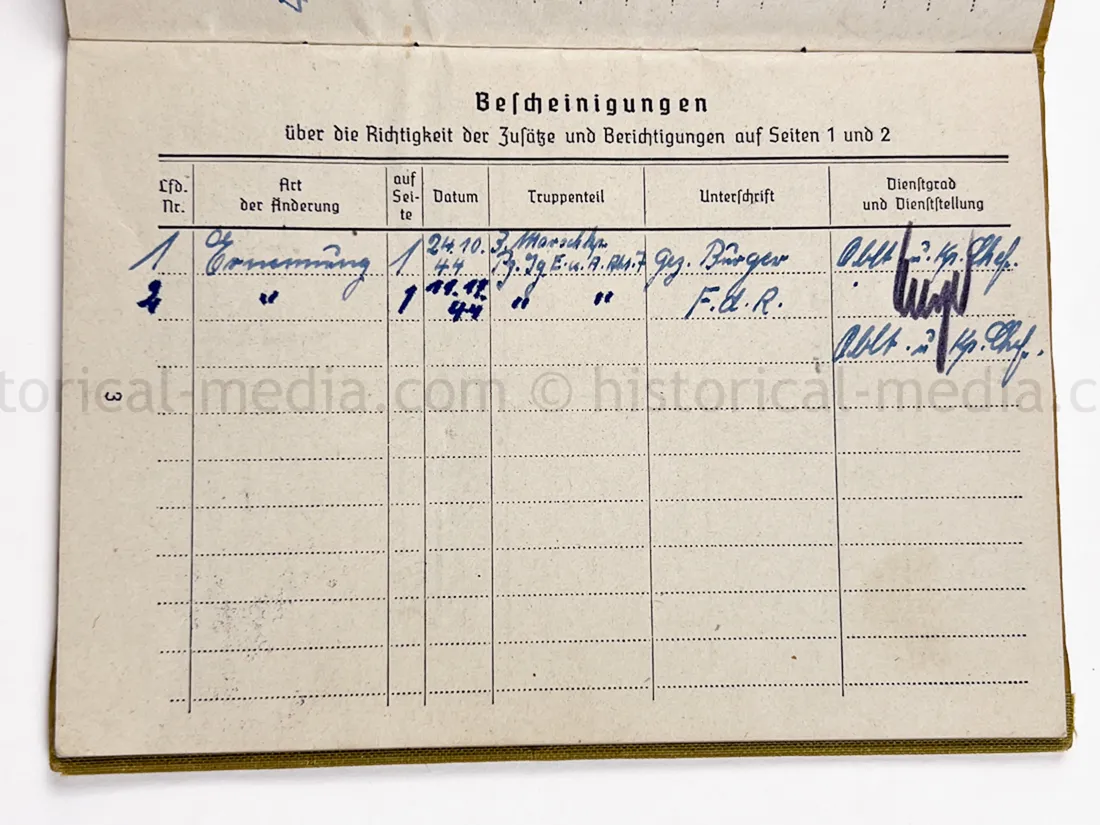 Bescheinigungen
über die Richtigkeit der Zusätze und Berichtigungen auf Seiten 1 und 2
Lfd. Nr.
Art der Änderung
auf Sei-te
Datum
Truppenteil
Unterschrift
Dienstgrad und Dienststellung
1 Ernennung 1 24.10.44 3. Marschkp. Pz. Jg. E. u. A. Abt. 7 Gez. Bürger Oblt u. Kp. Chef.
2 " 1 11.11.44 " " F.d.R.
Oblt. u. Kp. Chef.
3
historical-media.com © historical-media.c